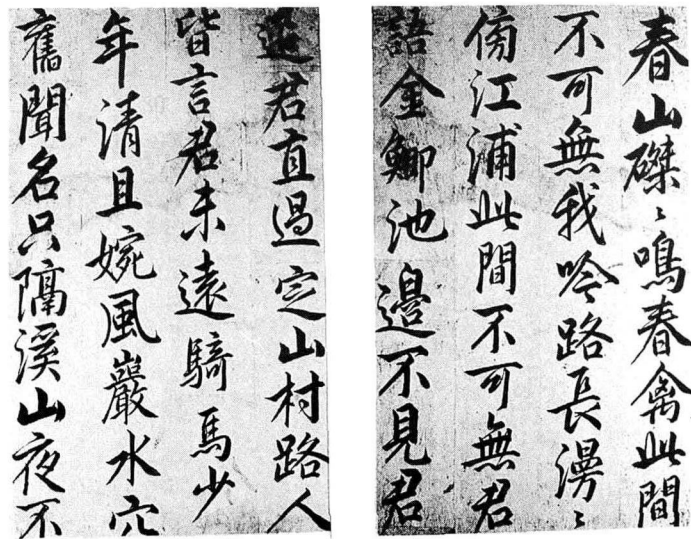 春山磔〻鳴春禽此間
不可無我吟路長漫〻
傍江浦此間不可無君
語金鯽池邊不見君
追君直過定山村路人
皆言君未遠騎馬少
年清且婉風巖水穴
舊聞名只隔溪山夜不